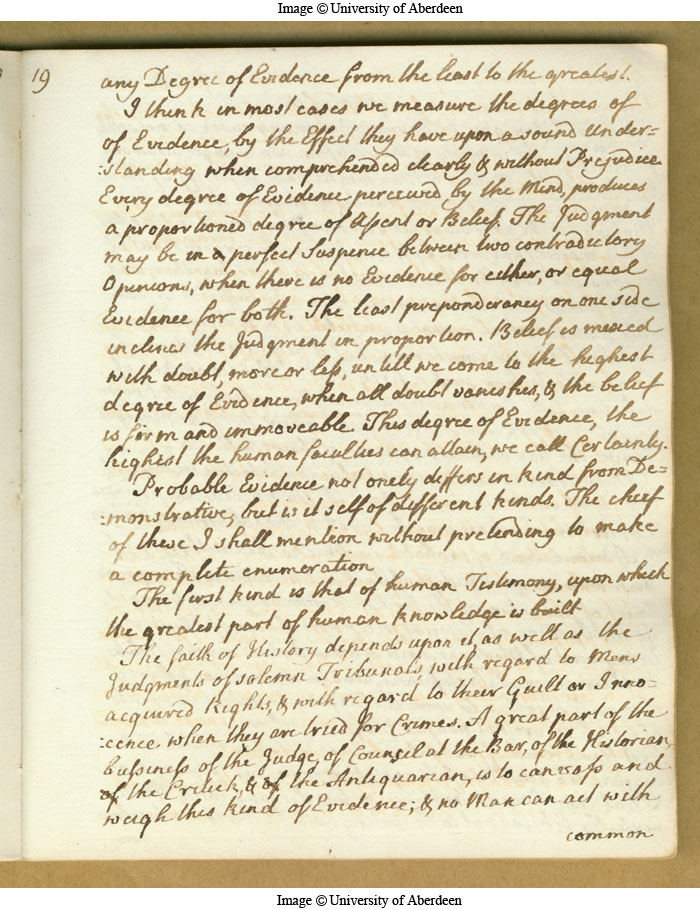 Image © University of Aberdeen
19
any Degree of Evidence from the least to the greatest.
I think in most cases we measure the degrees of
of Evidence, by the Effect they have upon a sound Under=
:standing when comprehended clearly & without Prejudice
Every degree of Evidence perceived by the Mind, produces
a proportioned degree of Assent or Belief. The Judgment
may be in a perfect Suspence between two contradictory
Opinions, when there is no Evidence for either, or equal
Evidence for both. The least preponderancy on one side
inclines the Judgment in proportion. Belief is mixed
with doubt, more or less, untill we come to the highest
degree of Evidence, when all doubt vanishes, & the belief
is firm and immoveable This degree of Evidence, the
highest the human faculties can attain, we call Certainty.
Probable Evidence not onely differs in kind from De=
:monstrative, but is it self of different kinds. The chief
of these I shall mention without pretending to make
a complete enumeration
The first kind is that of human Testimony, upon which
the greatest part of human knowledge is built
The faith of History depends upon it, as well as the
Judgments of solemn Tribunals, with regard to Mens
acquired Rights, & with regard to their Guilt or Inno-
:cence when they are tried for Crimes. A great part of the
bussiness of the Judge, of Counsel at the Bar, of the Historian,
of the Critick, & of the Antiquarian, is to canvass and
weigh this kind of Evidence; & no Man can act with
common
Image © University of Aberdeen